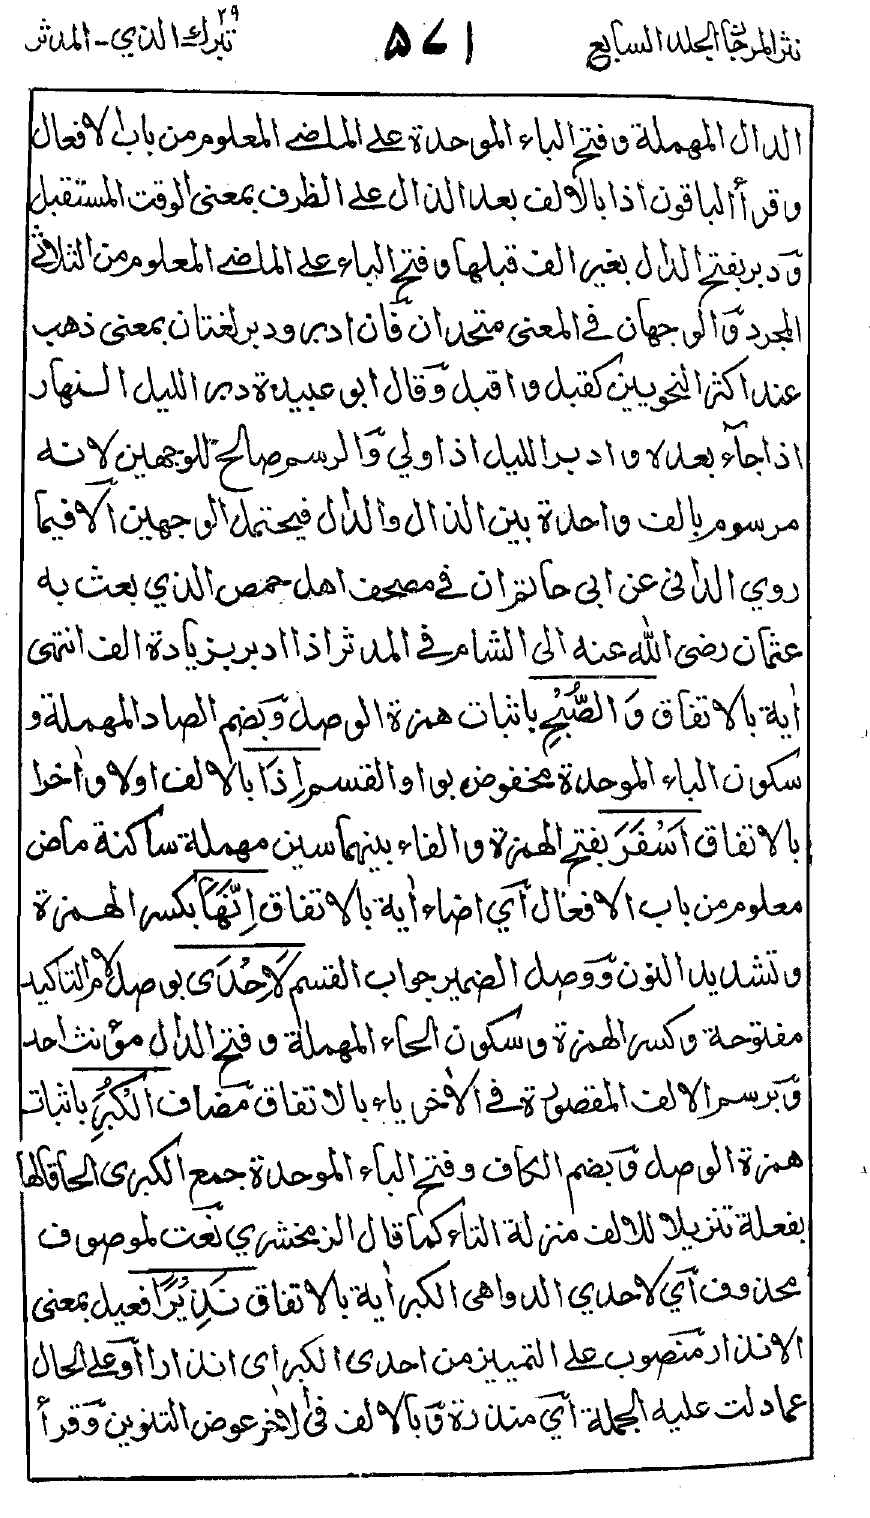 نثر المرجان الجلد السابع ٥٧١ تبرك الذي ٢٩ - المدثر
الدال المهملة وفتح الباء الموحدة على الماضي المعلوم من باب الافعال
وقرأ الباقون اذا بالالف بعد الذال على الظرف بمعنى الوقت المستقبل
ودبر بفتح الدال بغير الف قبلها وفتح الباء على الماضي المعلوم من الثلاثي
المجرد والوجهان في المعنى متحدان فان ادبر ودبر لغتان بمعنى ذهب
عند اكثر النحويين كقبل واقبل وقال ابو عبيدة دبر الليل النهار
اذا جآء بعده وادبر الليل اذا ولي والرسم صالح للوجهين لانه
مرسوم بالف واحدة بين الذال والدال فيحتمل الوجهين الا فيما
روي الداني عن ابي حاتم ان في مصحف اهل حمص الذي بعث به
عثمان رضى الله عنه الى الشام في المدثر اذا ادبر بزيادة الف انتهى
اٰية بالاتفاق وَالصُّبْحِ باثبات همزة الوصل وبضم الصاد المهملة و
سكون الباء الموحدة مخفوض بواو القسم اِذَا بالالف اولا واٰخرا
بالاتفاق اَسْفَرَ بفتح الهمزة والفاء بينهما سين مهملة ساكنة ماض
معلوم من باب الافعال اي اضاء اٰية بالاتفاق اِنَّهَا بكسر الهمزة
وتشديد النون ووصل الضمير جواب القسم لَاِحْدَى بوصل لام التاكيد
مفتوحة وكسر الهمزة وسكون الحاء المهملة وفتح الدال مؤنث احد
وبرسم الالف المقصورة في الاٰخر ياء بالاتفاق مضاف الْكُبَرِ باثبات
همزة الوصل وبضم الكاف وفتح الباء الموحدة جمع الكبرى الحاقا لها
بفعلة تنزيلا للالف منزلة التاء كما قال الزمخشري نعت لموصوف
محذوف اي لاحدي الدواهى الكبر اٰية بالاتفاق نَذِيْرًا فعيل بمعنى
الانذار منصوب على التمييز من احدى الكبر اى انذارا او على الحال
عما دلت عليه الجملة اي منذرة وبالالف في الاٰخر عوض التنوين وقرأ